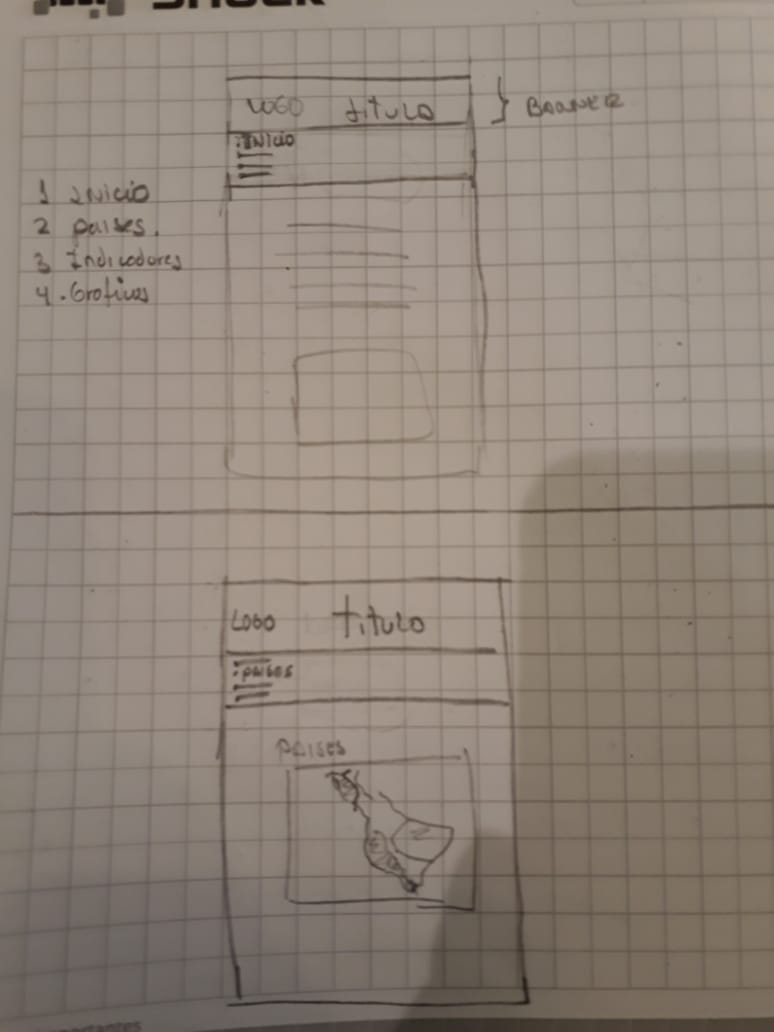 LOGO titulo } BANNER
:INICIO
1 INICIO
2 paises.
3 Indicadores
4. Graficos
LOGO titulo
:paises
paises